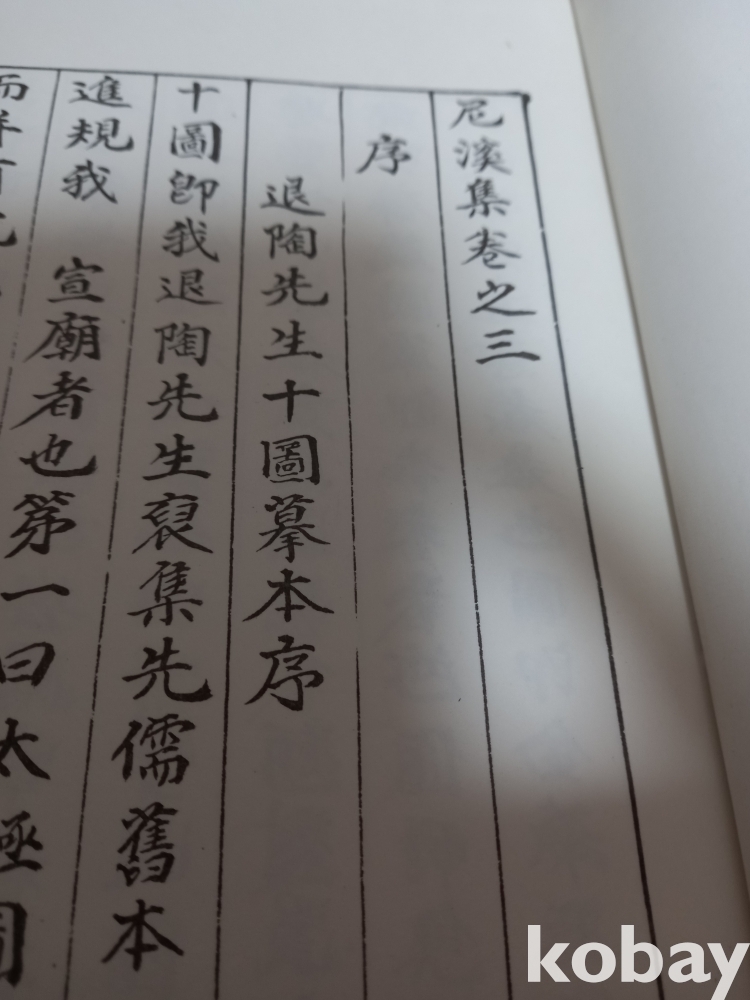 尼溪集卷之三
序
退陶先生十圖摹本序
十圖卽我退陶先生裒集先儒舊本
進規我　宣廟者也第一曰太極圖
而
kobay